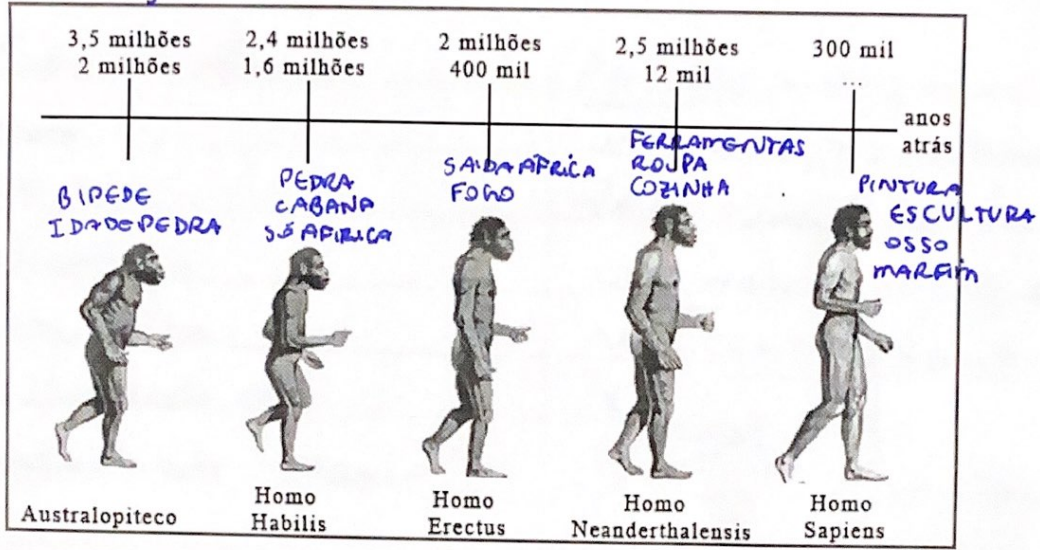 3,5 milhões
2 milhões
2,4 milhões
1,6 milhões
2 milhões
400 mil
2,5 milhões
12 mil
300 mil
...
anos
atrás
BIPEDE
IDADE PEDRA
PEDRA
CABANA
SÓ AFIRICA
SAIDA AFRICA
FOGO
FERRAMENTAS
ROUPA
COZINHA
PINTURA
ESCULTURA
OSSO
MARFIM
Australopiteco
Homo
Habilis
Homo
Erectus
Homo
Neanderthalensis
Homo
Sapiens